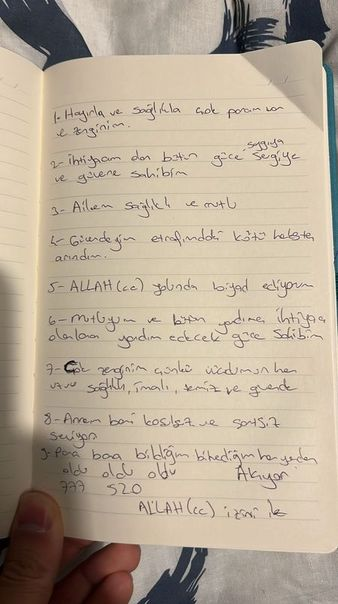 1- Hayırla ve sağlıkla çok param var
ve zenginim.
2- ihtiyacım olan bütün güce saygıya sevgiye
ve güvene sahibim
3- Ailem sağlıklı ve mutlu
4- Güvendeyim etrafımdaki kötü herkesten
arındım.
5- ALLAH (cc) yolunda ediyorum
6- Mutluyum ve bütün yardıma ihtiyacı
olanlara yardım edecek güce sahibim
7- Çok zenginim çünkü vücudumun her
sağlıklı, imanlı, temiz ve güvende
8- Annem beni koşulsuz ve şartsız
seviyor
9- Para bana bildiğim bilmediğim her yerden
oldu oldu oldu Akıyor
777 520
ALLAH (cc) izni ile